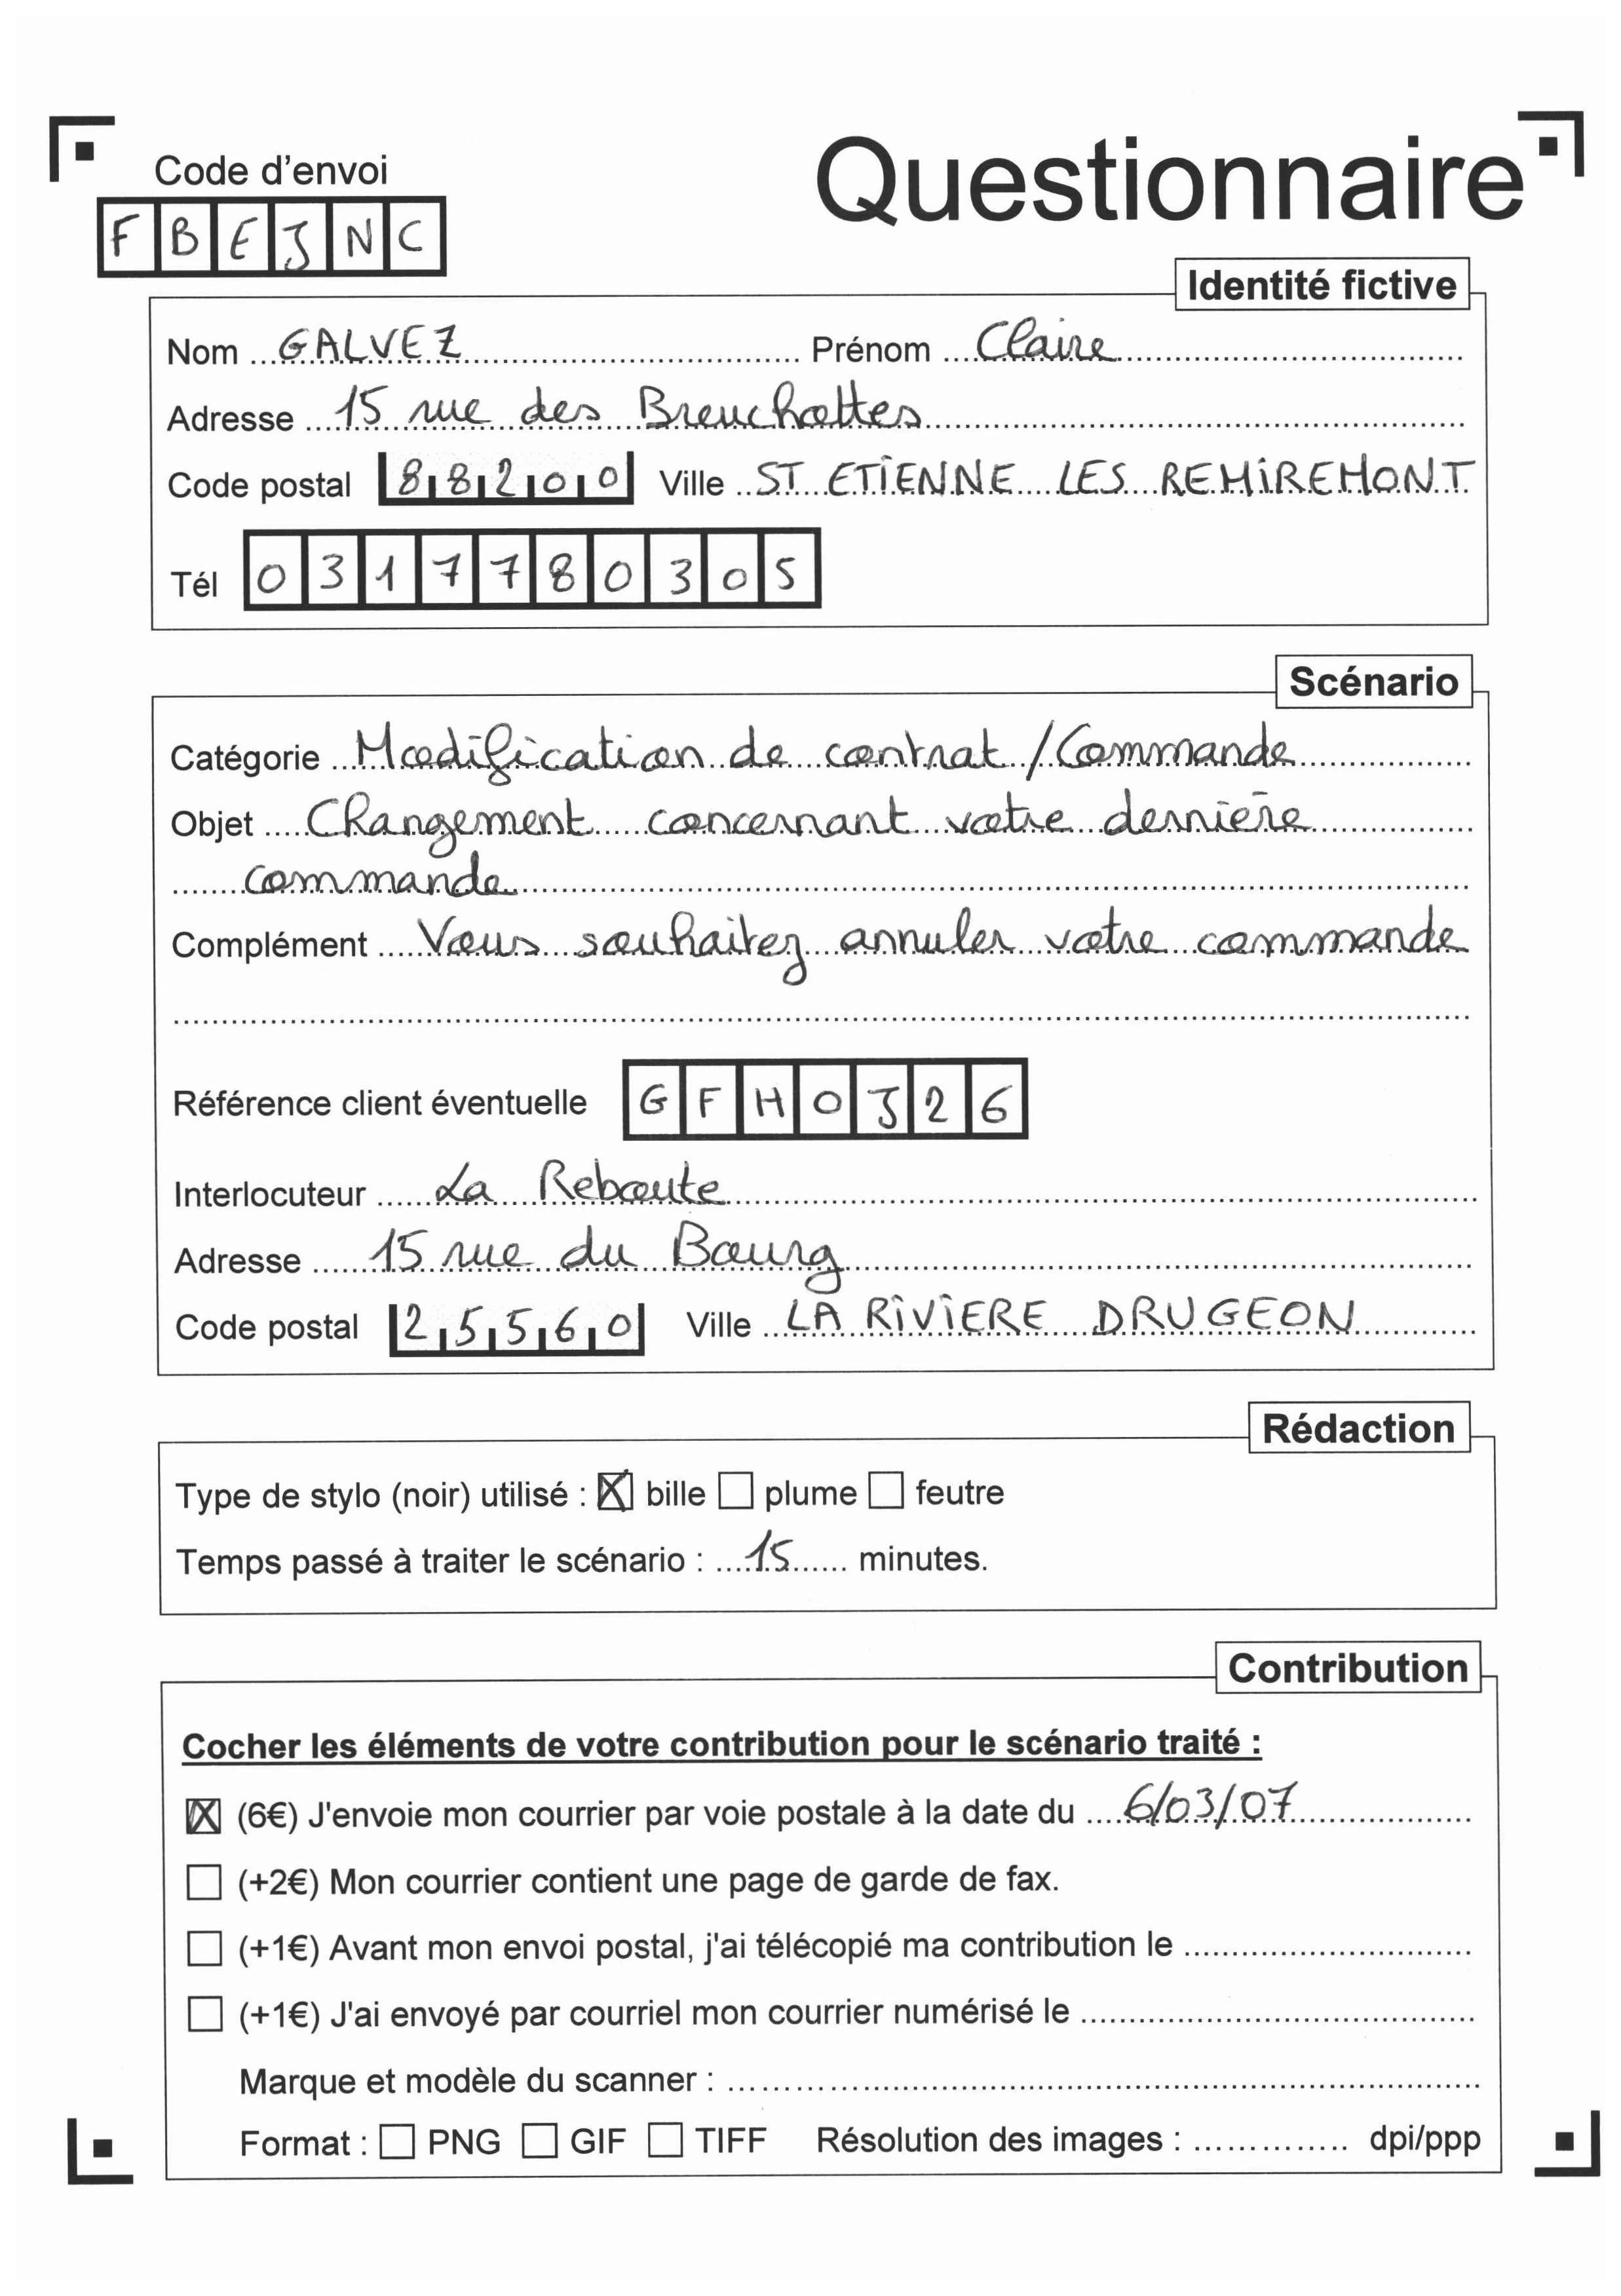 Code d'envoi
Questionnaire
FBEJNC
Identité fictive
Nom GALVEZ Prénom Claire
Adresse 15 rue des Breuchottes
Code postal 88200 Ville ST ETIENNE LES REMIREMONT
Tél 0317780305
Scénario
Catégorie Modification de contrat / Commande
Objet Changement concernant votre dernière
commande
Complément Vous souhaitez annuler votre commande
Référence client éventuelle GFHOJ26
Interlocuteur La Reboute
Adresse 15 rue du Bourg
Code postal 25560 Ville LA RIVIERE DRUGEON
Rédaction
Type de stylo (noir) utilisé : ☒ bille ☐ plume ☐ feutre
Temps passé à traiter le scénario : 15 minutes.
Contribution
Cocher les éléments de votre contribution pour le scénario traité :
☒ (6€) J'envoie mon courrier par voie postale à la date du 6/03/07
☐ (+2€) Mon courrier contient une page de garde de fax.
☐ (+1€) Avant mon envoi postal, j'ai télécopié ma contribution le
☐ (+1€) J'ai envoyé par courriel mon courrier numérisé le
Marque et modèle du scanner :
Format : ☐ PNG ☐ GIF ☐ TIFF Résolution des images : dpi/ppp